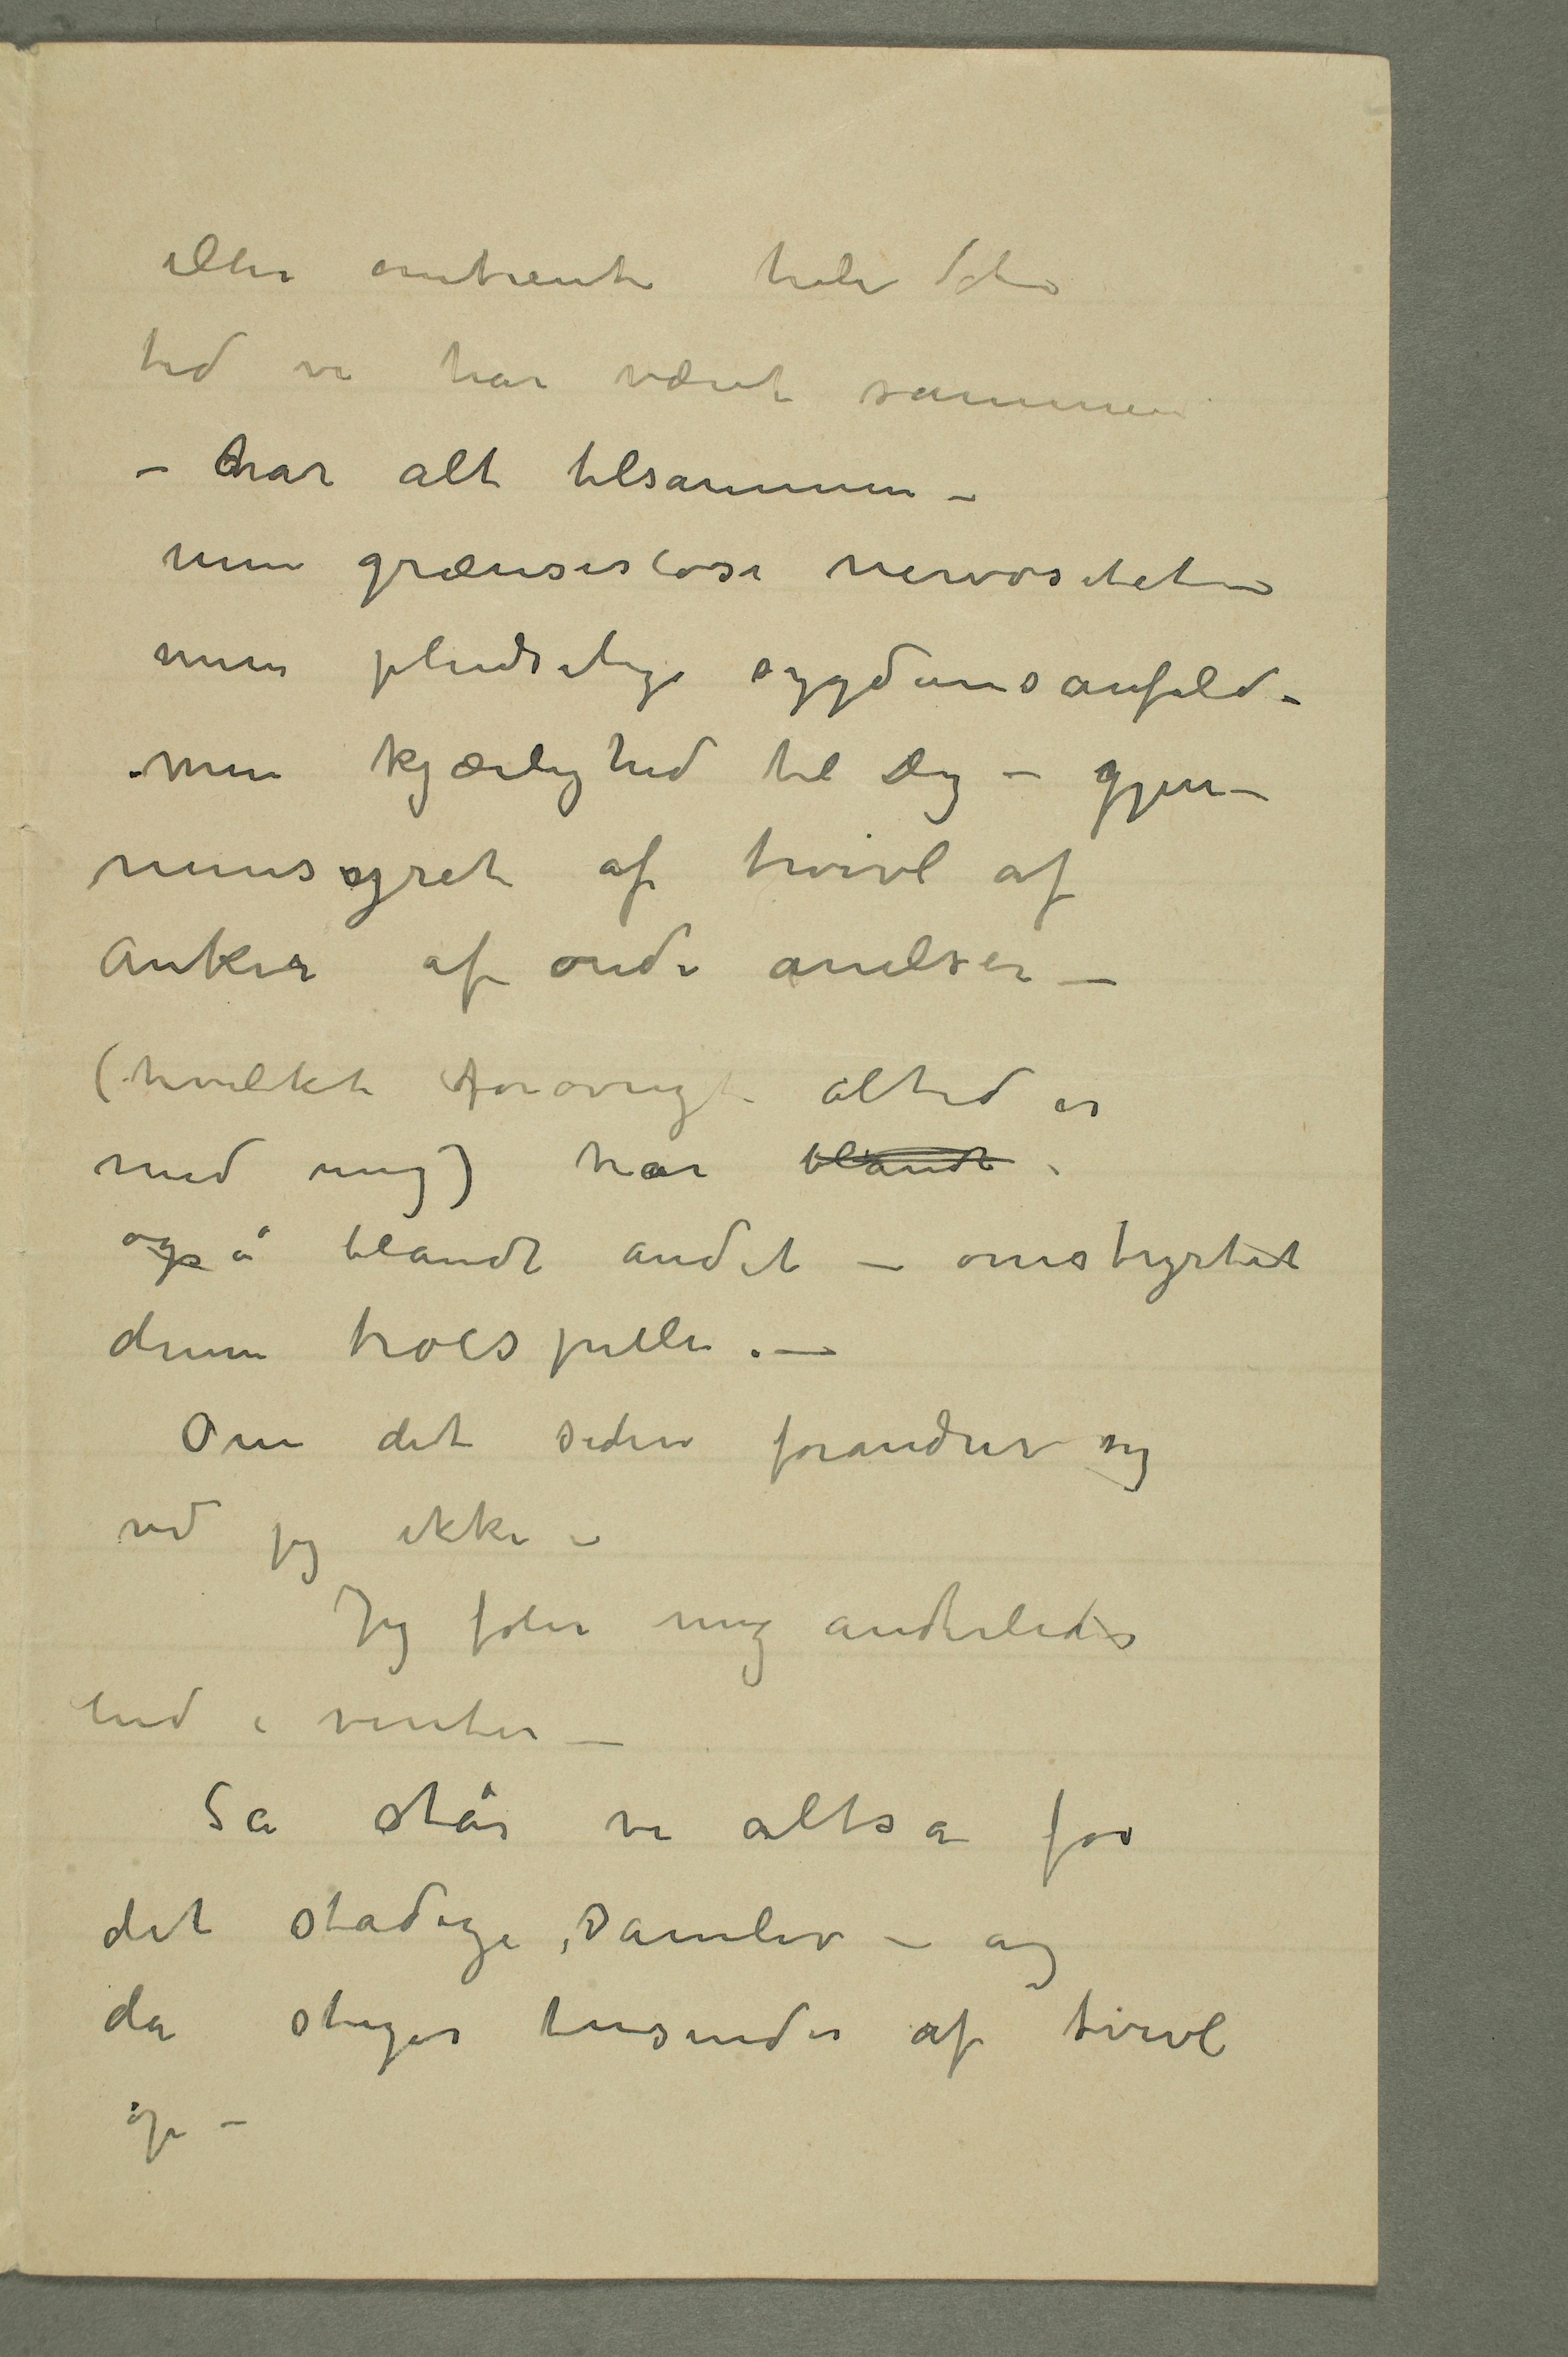 eller omtrent hele den
tid vi har været sammen
– har alt tilsammen –
min grænseløse nervøsitet –
mine pludselige sygdomsanfald –
min kjærlighed til Dig – gjen-
nemsyret af tvivl af
anker af onde anelser –
(hvilket forøvrigt altid er
med mig) har blandt
også blandt andet – omstyrtet
denne troespille. –
Om det siden forandrer sig
ved jeg ikke –
Jeg føler mig anderledes
end i vinter –
Så står vi altså for
det stadige samliv – og
da stiger tusinder af tvivl
op –